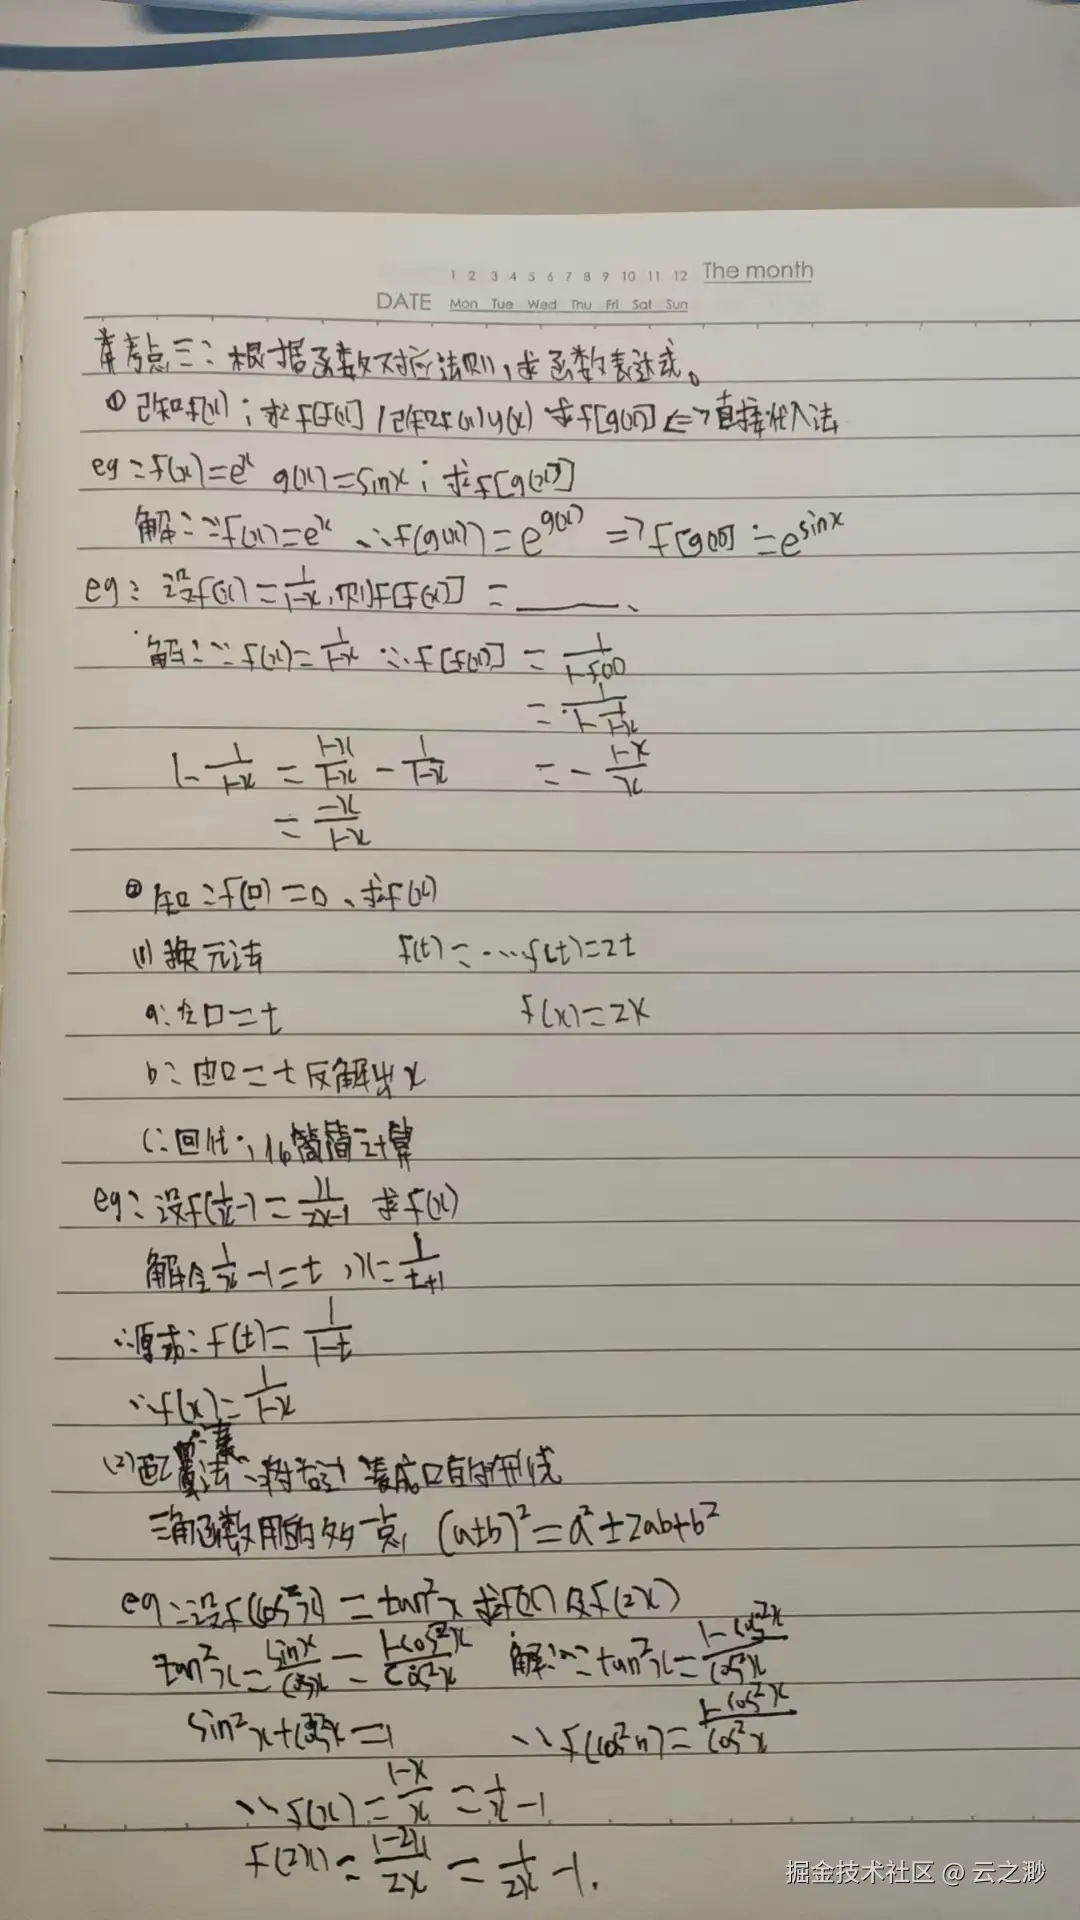 1 2 3 4 5 6 7 8 9 10 11 12 The month
DATE Mon Tue Wed Thu Fri Sat Sun
考点三：根据函数对应法则，求函数表达式。
① 已知f(x)；求f[f(x)] / 已知f(x) g(x) 求f[g(x)] <=> 直接代入法
eg：f(x)=e^x g(x)=sinx；求f[g(x)]
解：∵f(x)=e^x ∴f(g(x))=e^g(x) => f[g(x)]=e^sinx
eg：设f(x)=1/(1-x)，则f[f(x)]=____、
解：∵f(x)=1/(1-x) ∴f[f(x)]=1/(1-f(x))
=1/(1-1/(1-x))
1-1/(1-x)=(1-x)/(1-x)-1/(1-x) =-(1-x)/x
=-x/(1-x)
② 知：f(□)=□、求f(x)
(1) 换元法 f(t)=…f(t)=2t
a：令□=t f(x)=2x
b：由□=t反解出x
c：回代，化简计算
eg：设f(1/x-1)=x/(2x-1) 求f(x)
解令1/x-1=t，x=1/(t+1)
∴原式：f(t)=1/(1-t)
∴f(x)=1/(1-x)
(2)配凑法：将右边凑成□的形式
三角函数用的多一点，(a±b)²=a²±2ab+b²
eg：设f(cos²x)=tan²x 求f(x)及f(2x)
tan²x=sinx/cosx=(1-cos²x)/cos²x 解：∵tan²x=(1-cos²x)/cos²x
sin²x+cos²x=1 ∴f(cos²x)=(1-cos²x)/cos²x
∴f(x)=(1-x)/x=1/x-1
f(2x)=(1-2x)/2x=1/2x-1.
掘金技术社区 @ 云之渺